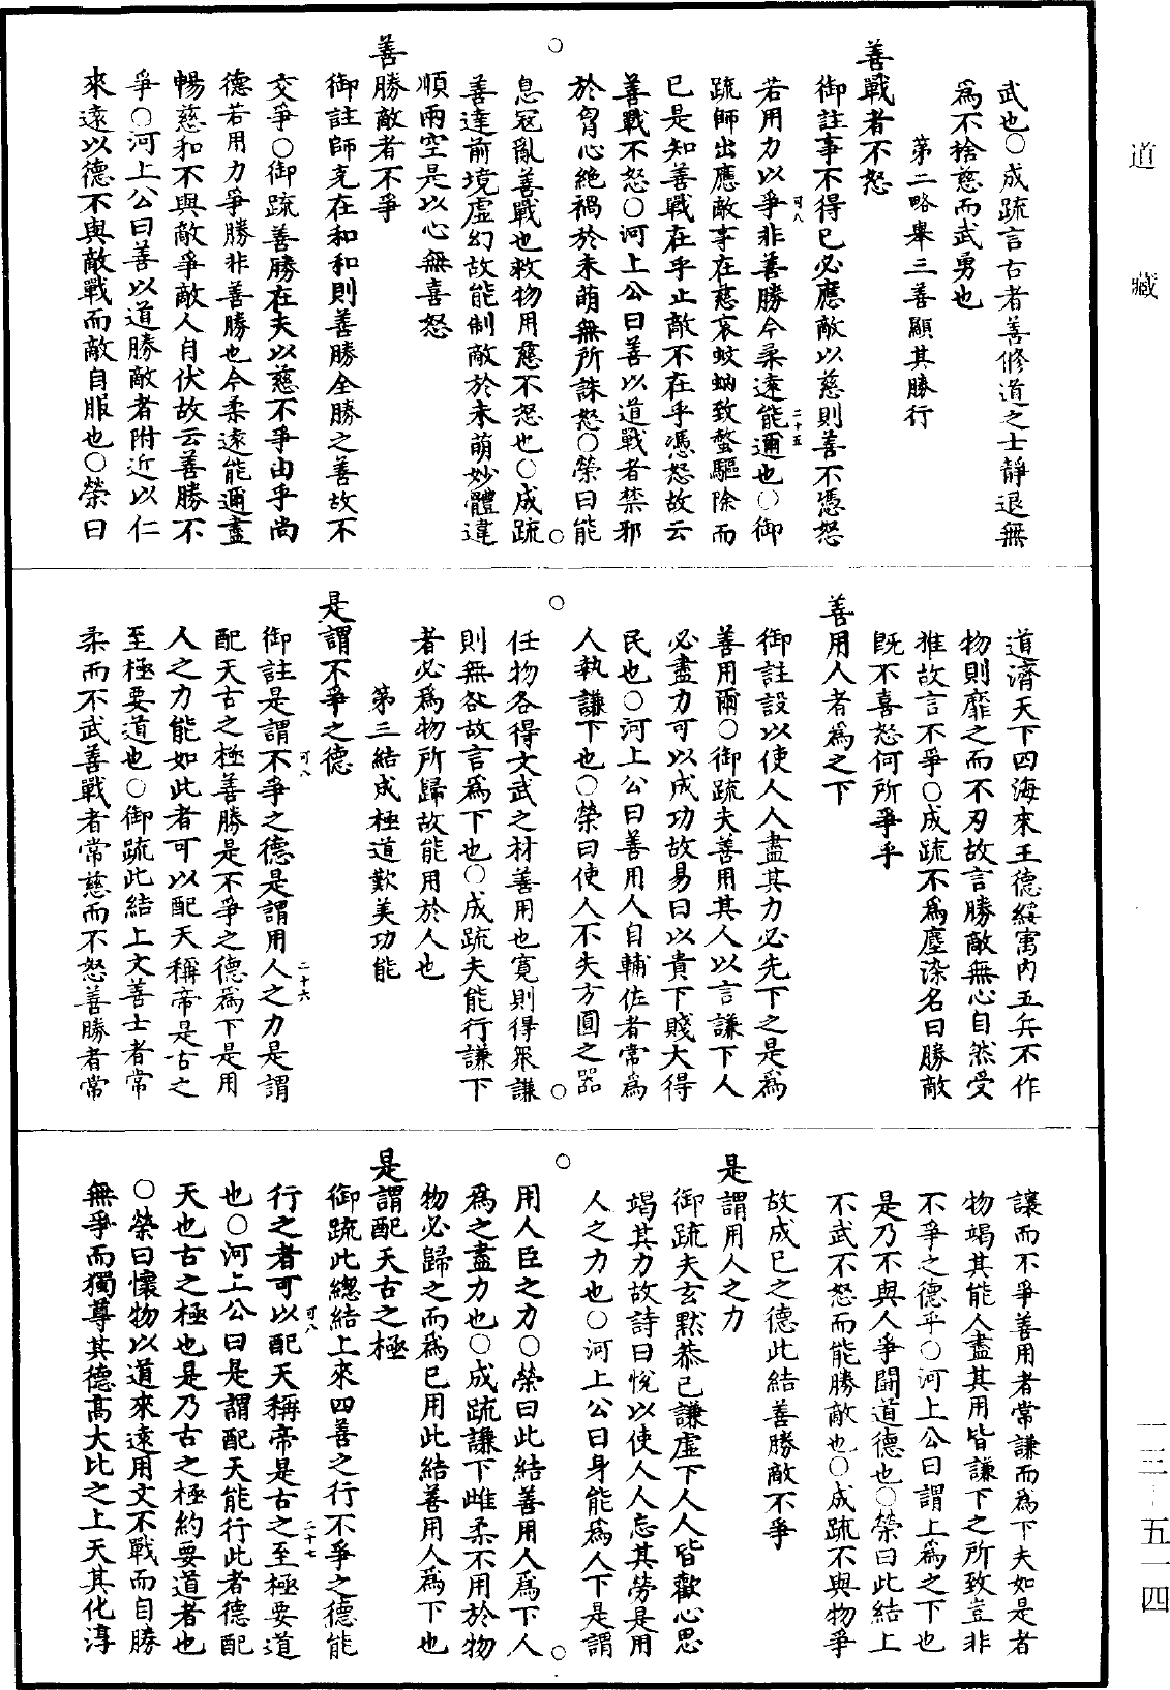 道藏
武也○成疏言古者善修道之士靜退無
爲不捨慈而武勇也
第二略舉三善顯其勝行
善戰者不怒
御註事不得已必應敵以慈則善不憑怒
若用力以爭非善勝今柔遠能邇也○御
可八
二十五
疏師出應敵事在慈哀蚊蚋致螫驅除而
已是知善戰在乎止敵不在乎憑怒故云
善戰不怒○河上公曰善以道戰者禁邪
於胷心絶禍於未萌無所誅怒○榮曰能
○
○
息寇亂善戰也救物用慈不怒也○成疏
善達前境虛幻故能制敵於未萌妙體違
順兩空是以心無喜怒
善勝敵者不爭
御註師克在和和則善勝全勝之善故不
交爭○御疏善勝在夫以慈不爭由乎尚
德若用力爭勝非善勝也今柔遠能邇盡
暢慈和不與敵爭敵人自伏故云善勝不
爭○河上公曰善以道勝敵者附近以仁
來遠以德不與敵戰而敵自服也○榮曰
道濟天下四海來王德綏寓内五兵不作
物則靡之而不刃故言勝敵無心自然受
推故言不爭○成疏不爲塵染名曰勝敵
旣不喜怒何所爭乎
善用人者爲之下
御註設以使人人盡其力必先下之是爲
善用爾○御疏夫善用其人以言謙下人
必盡力可以成功故易曰以貴下賤大得
民也○河上公曰善用人自輔佐者常爲
人執謙下也○榮曰使人不失方圓之器
○
○
任物各得文武之材善用也寬則得衆謙
則無咎故言爲下也○成疏夫能行謙下
者必爲物所歸故能用於人也
第三結成極道歎美功能
是謂不爭之德
可八
二十六
御註是謂不爭之德是謂用人之力是謂
配天古之極善勝是不爭之德爲下是用
人之力能如此者可以配天稱帝是古之
至極要道也○御疏此結上文善士者常
柔而不武善戰者常慈而不怒善勝者常
讓而不爭善用者常謙而爲下夫如是者
物竭其能人盡其用皆謙下之所致豈非
不爭之德乎○河上公曰謂上爲之下也
是乃不與人爭鬪道德也○榮曰此結上
不武不怒而能勝敵也○成疏不與物爭
故成已之德此結善勝敵不爭
是謂用人之力
御疏夫玄默恭己謙虛下人人皆歡心思
竭其力故詩曰悅以使人人忘其勞是用
人之力也○河上公曰身能爲人下是謂
○
○
用人臣之力○榮曰此結善用人爲下人
爲之盡力也○成疏謙下雌柔不用於物
物必歸之而爲已用此結善用人爲下也
是謂配天古之極
御疏此總結上來四善之行不爭之德能
可八
二十七
行之者可以配天稱帝是古之至極要道
也○河上公曰是謂配天能行此者德配
天也古之極也是乃古之極約要道者也
○榮曰懷物以道來遠用文不戰而自勝
無爭而獨尊其德高大比之上天其化淳
一三-五一四